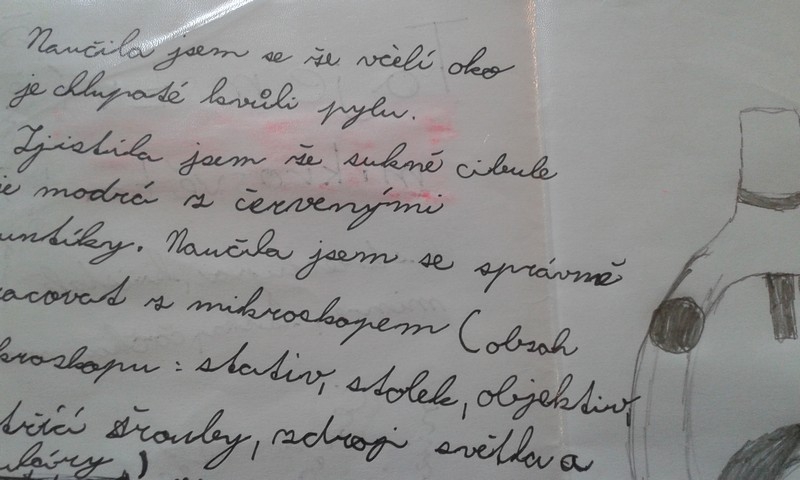 Naučila jsem se že včelí oko
je chlupaté kvůli pylu.
Zjistila jsem že sukně cibule
je modrá z červenými
untíky. Naučila jsem se správně
racovat s mikroskopem (obsah
kroskopu : stativ, stolek, objektiv,
třící šrouby, zdroj světla a
uláry)